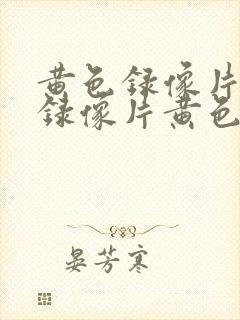 黄色録像片
録像片黄色
晏芳寒